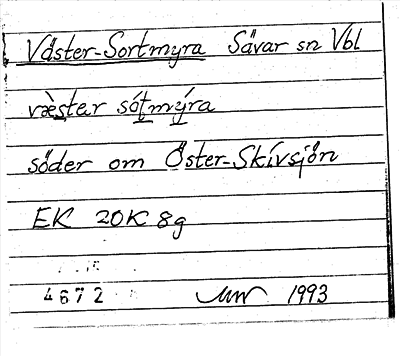 Väster-Sortmyra Sävar sn Vbl
væ̀ster só̱tmý̱ra
söder om Öster-Skivsjön
EK 20K 8g
4672 1993